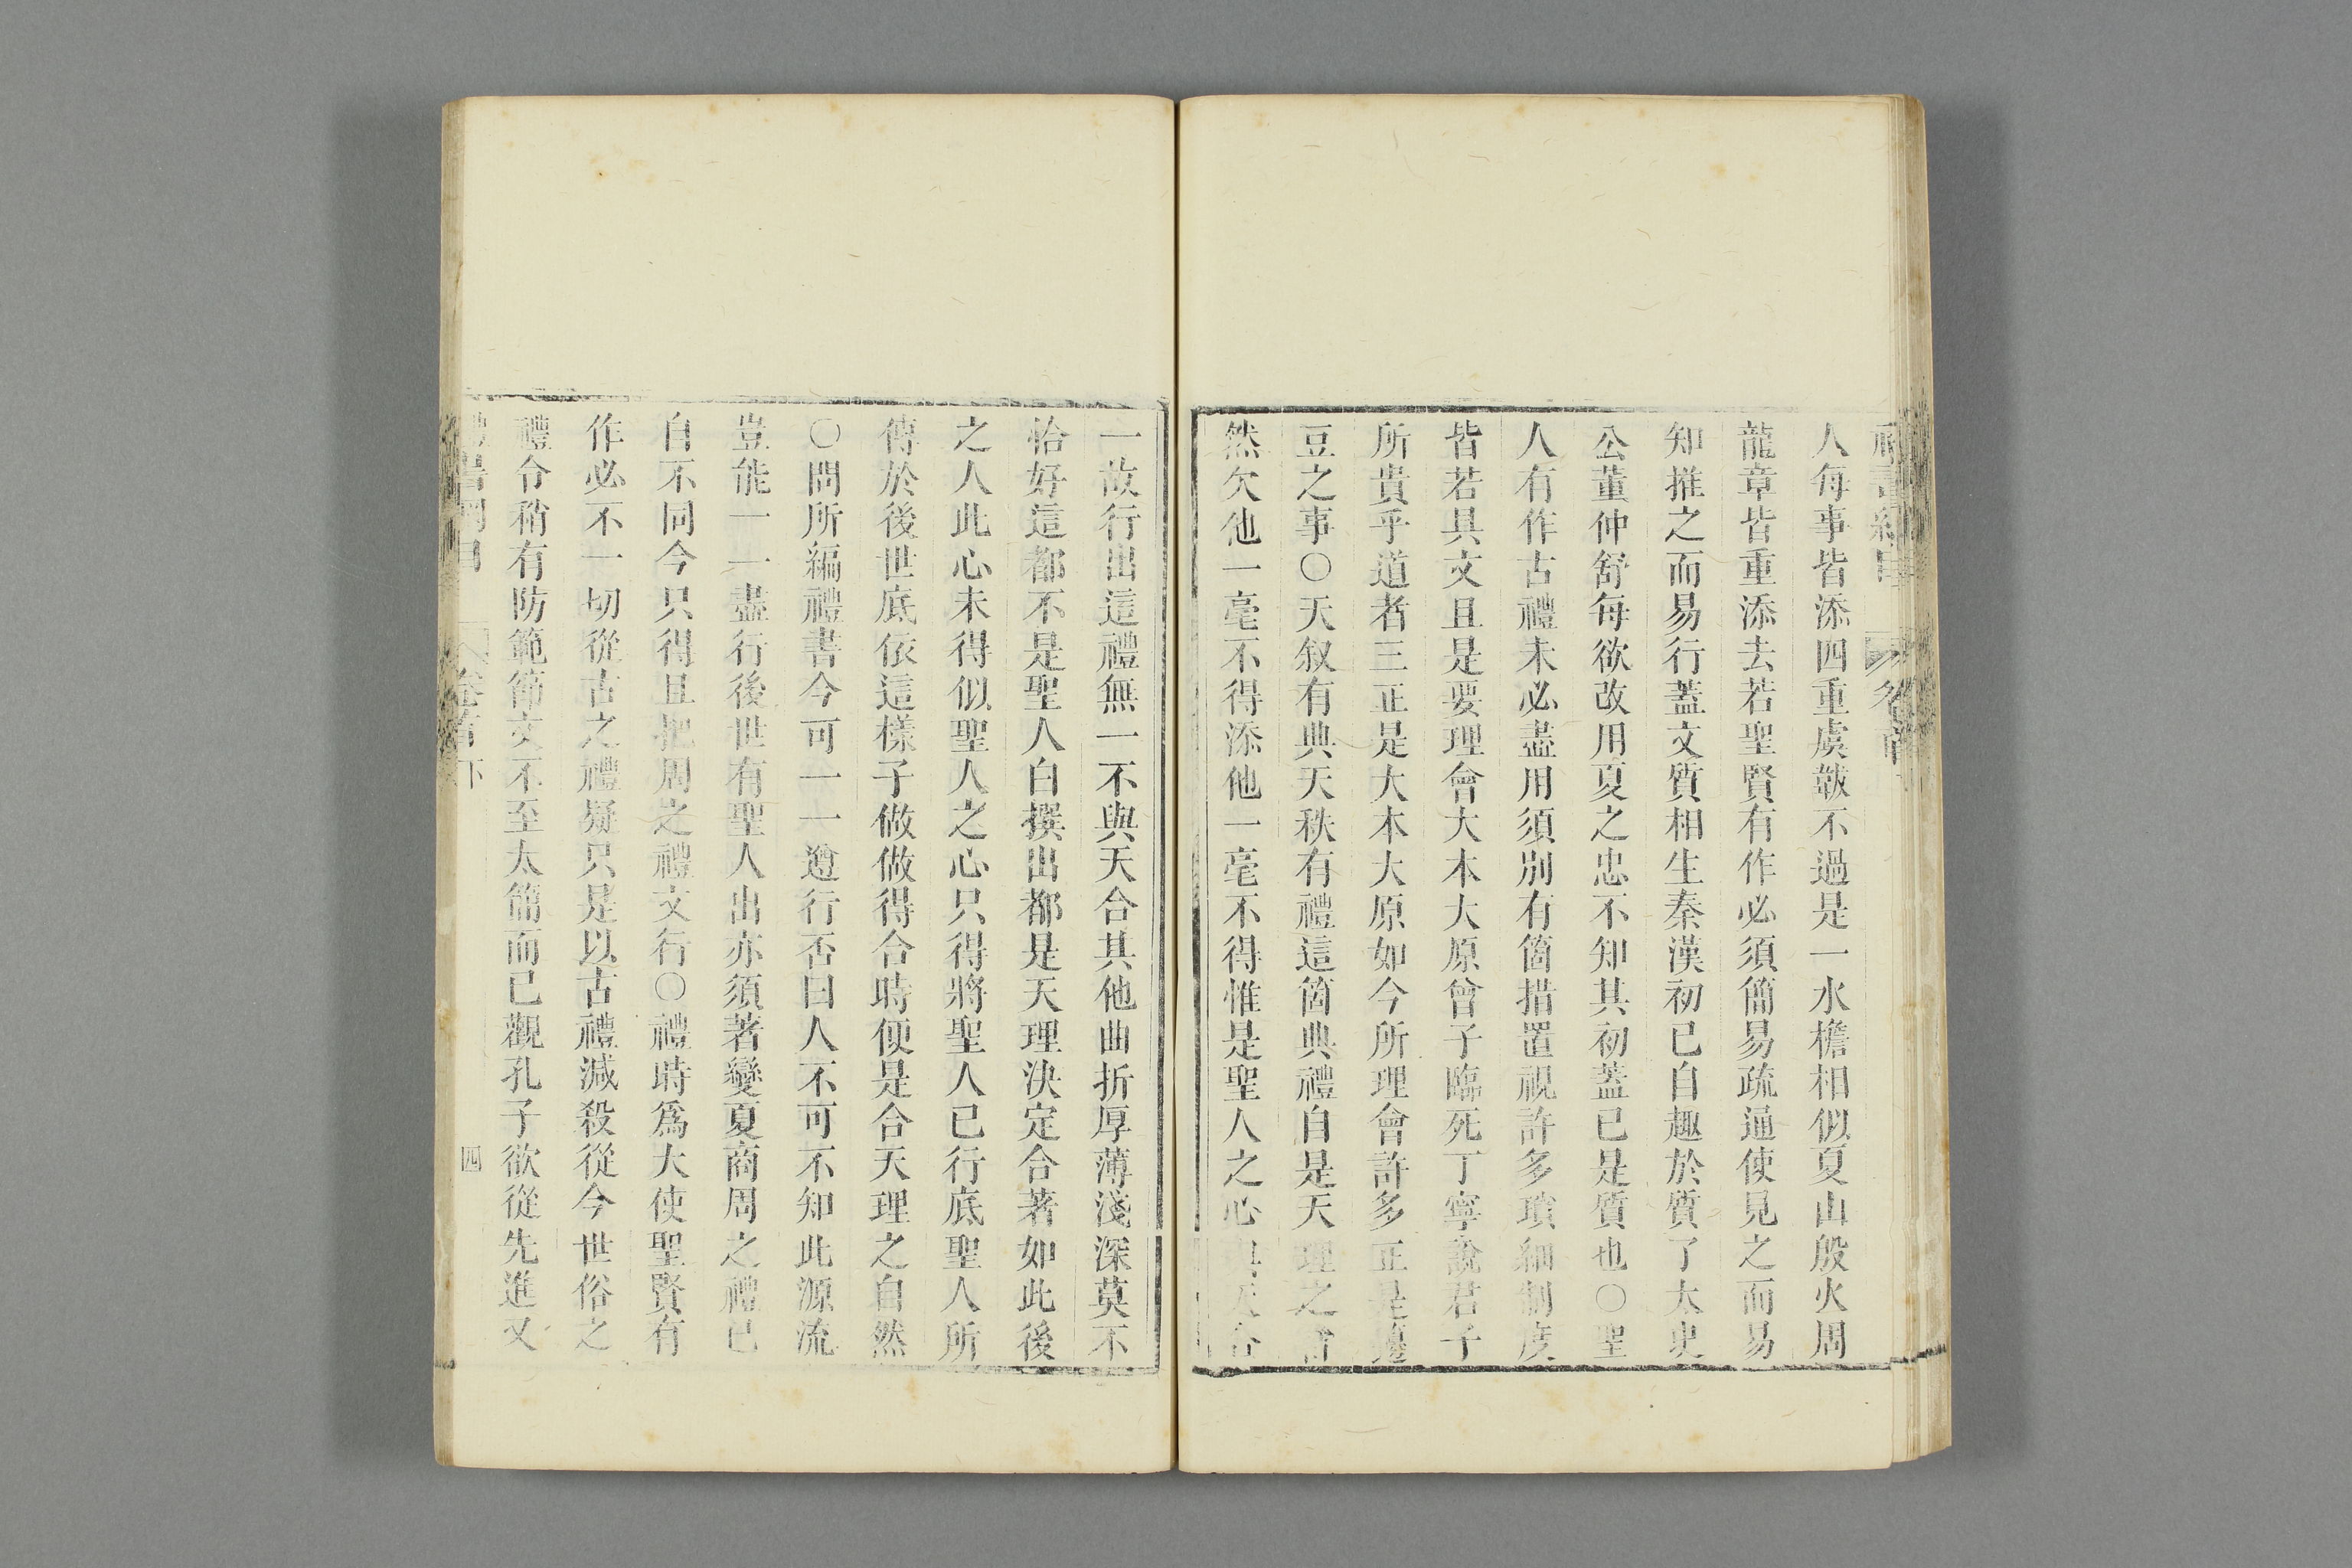 人每事皆添四重虞韍不過是一水檐相似夏山殷火周
龍章皆重添去若聖賢有作必須簡易疏通使見之而易
知推之而易行蓋文質相生秦漢初已自趣於質了太史
公董仲舒每欲改用夏之忠不知其初蓋已是質也○聖
人有作古禮未必盡用須別有箇措置視許多瑣細制度
皆若具文且是要理會大本大原曾子臨死丁寧說君子
所貴乎道者三正是大本大原如今所理會許多正是籩
豆之事○天叙有典天秩有禮這箇典禮自是天理之當
然欠他一毫不得添他一毫不得惟是聖人之心與天合
一故行出這禮無一不與天合其他曲折厚薄淺深莫不
恰好這都不是聖人白撰出都是天理決定合著如此後
之人此心未得似聖人之心只得將聖人已行底聖人所
傳於後世底依這樣子做做得合時便是合天理之自然
○問所編禮書今可一一遵行否曰人不可不知此源流
豈能一一盡行後世有聖人出亦須著變夏商周之禮已
自不同今只得且把周之禮文行○禮時爲大使聖賢有
作必不一切從古之禮疑只是以古禮減殺從今世俗之
禮令稍有防範節文不至太簡而已觀孔子欲從先進又
禮書綱目 卷首下 四